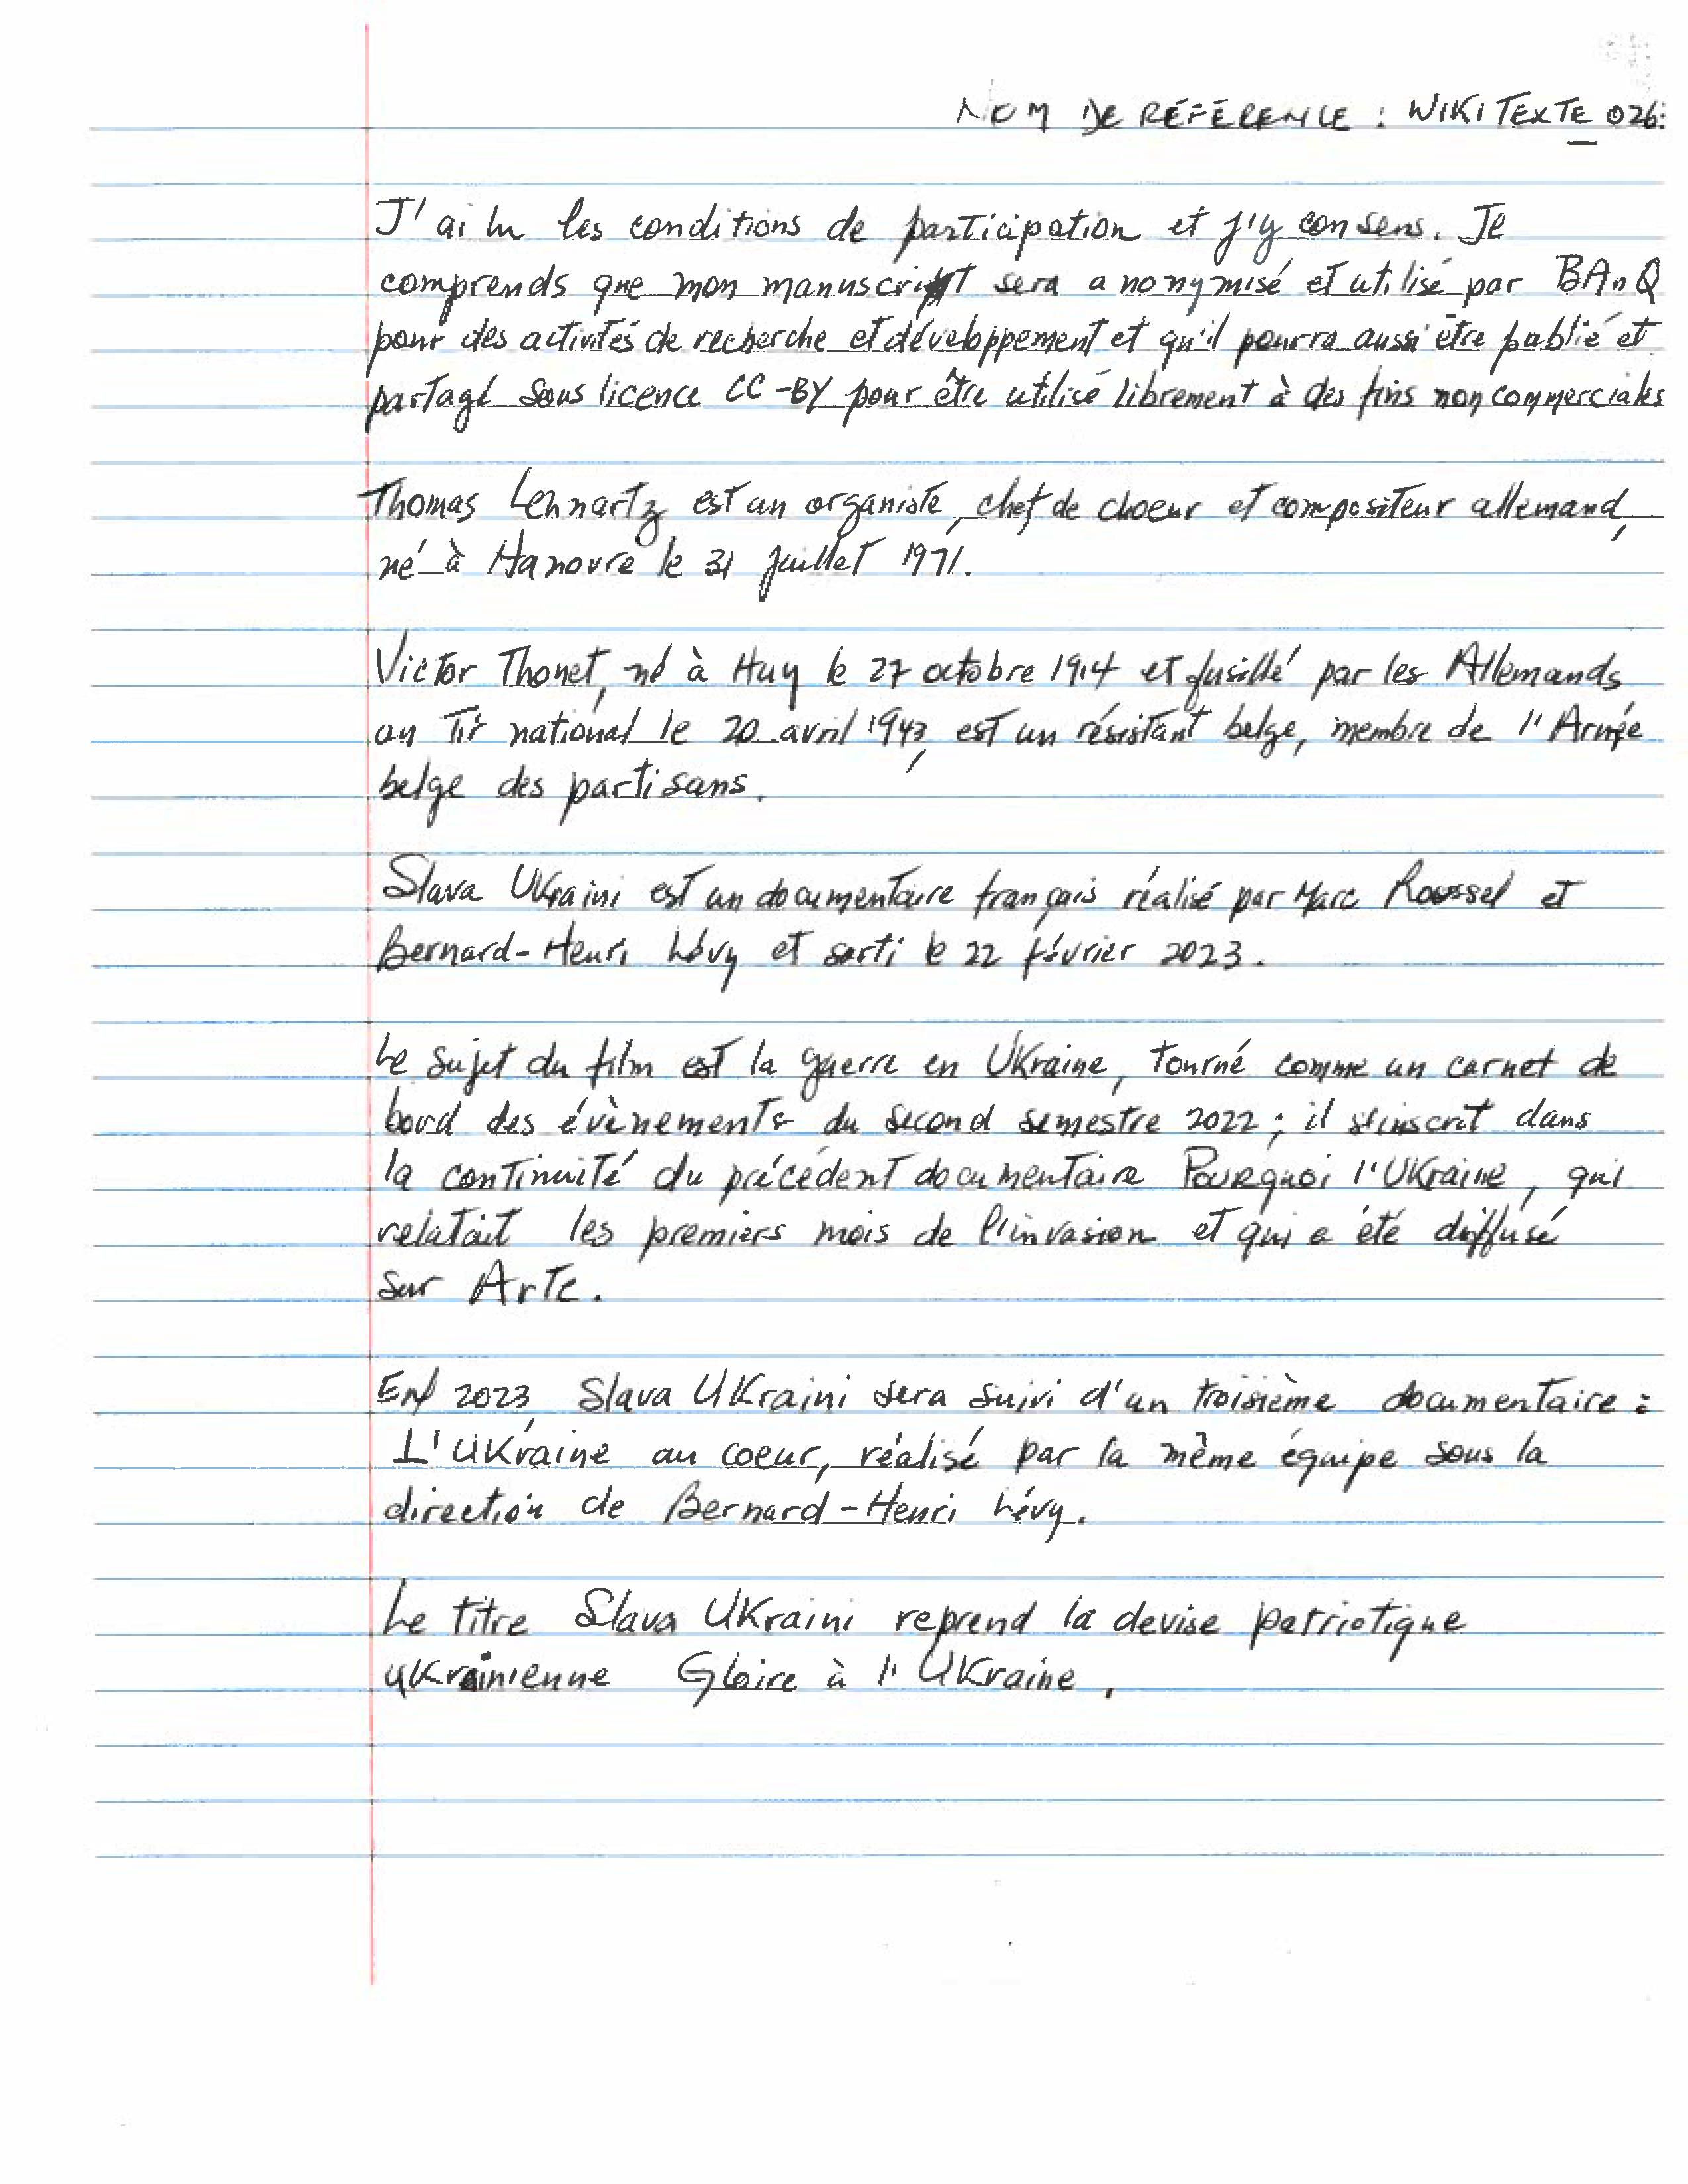 NOM DE RÉFÉRENCE : WIKITEXTE 026
J'ai lu les conditions de participation et j'y consens. Je
comprends que mon manuscript sera anonymisé et utilisé par BAnQ
pour des activités de recherche et développement et qu'il pourra aussi être publié et
partagé sous licence CC-BY pour être utilisé librement à des fins non commerciales
Thomas Lennartz est un organiste, chef de choeur et compositeur allemand,
né à Hanovre le 31 juillet 1971.
Victor Thonet, né à Huy le 27 octobre 1914 et fusillé par les Allemands
au Tir national le 20 avril 1943, est un résistant belge, membre de l'Armée
belge des partisans.
Slava Ukraini est un documentaire français réalisé par Marc Roussel et
Bernard-Henri Lévy et sorti le 22 février 2023.
Le sujet du film est la guerre en Ukraine, tourné comme un carnet de
bord des évènements du second semestre 2022 ; il s'inscrit dans
la continuité du précédent documentaire Pourquoi l'Ukraine, qui
relatait les premiers mois de l'invasion et qui a été diffusé
sur Arte.
En 2023, Slava Ukraini sera suivi d'un troisième documentaire :
L'Ukraine au coeur, réalisé par la même équipe sous la
direction de Bernard-Henri Lévy.
Le titre Slava Ukraini reprend la devise patriotique
ukrainienne Gloire à l'Ukraine.